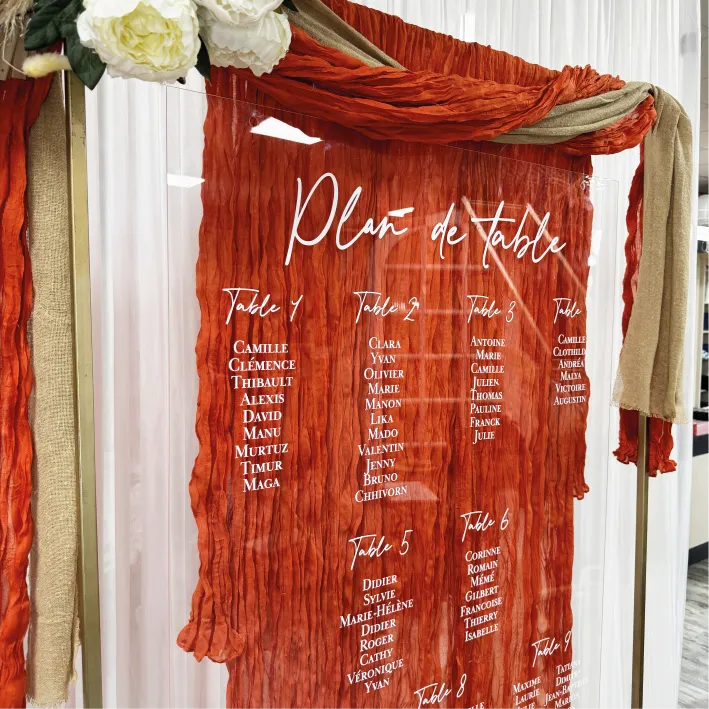 Plan de table
Table 1
CAMILLE
CLÉMENCE
THIBAULT
ALEXIS
DAVID
MANU
MURTUZ
TIMUR
MAGA
Table 2
CLARA
YVAN
OLIVIER
MARIE
MANON
LIKA
MADO
VALENTIN
JENNY
BRUNO
CHHIVORN
Table 3
ANTOINE
MARIE
CAMILLE
JULIEN
THOMAS
PAULINE
FRANCK
JULIE
Table
CAMILLE
CLOTHILD
ANDRÉA
MALYA
VICTOIRE
AUGUSTIN
Table 5
DIDIER
SYLVIE
MARIE-HÉLÈNE
DIDIER
ROGER
CATHY
VÉRONIQUE
YVAN
Table 6
CORINNE
ROMAIN
MÉMÉ
GILBERT
FRANCOISE
THIERRY
ISABELLE
Table 8
Table 9
MAXIME
LAURIE